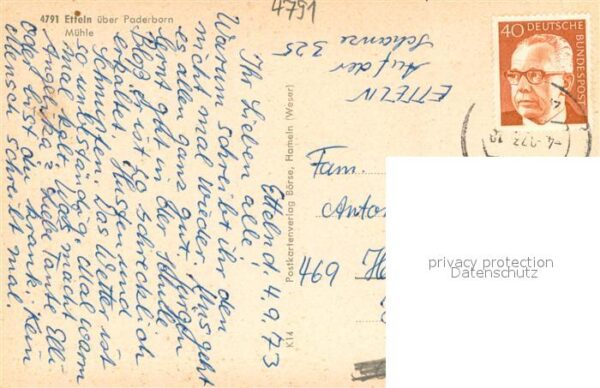 4791
4791 Etteln über Paderborn
Mühle
ETTELN
Auf der
Schanze 325
40 DEUTSCHE
BUNDESPOST
-4.-9.73-18
Etteln d. 4.9.73
Ihr Lieben alle,
Warum schreibt ihr den
nicht mal wieder. Uns geht
es allen ganz gut, Jürgen
Sonst geht in der Schule
Blos ist so schrecklich
erkältet Husten und
Schnupfen. Das Wetter ist
so unbeständig, Mal warm
mal kalt. Was macht
Angelika? Liebe Tante Elli
Oder bist du krank. Kein
Mensch schreibt mal.
Postkartenverlag Börse, Hameln (Weser)
K14
Fam.
Anton
469 H
privacy protection
Datenschutz